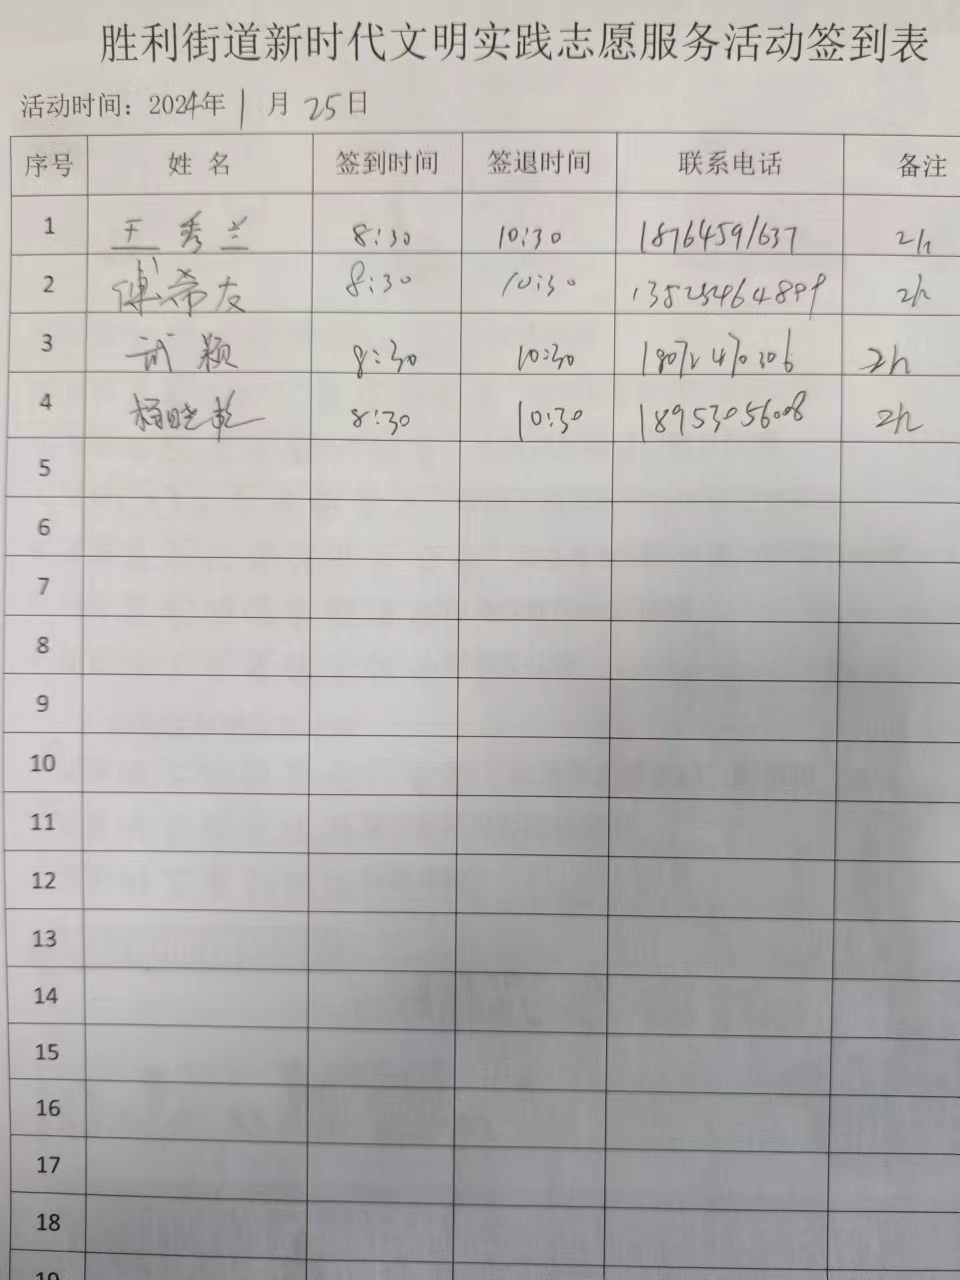 胜利街道新时代文明实践志愿服务活动签到表
活动时间：2024年1月25日
序号 姓名 签到时间 签退时间 联系电话 备注
1 王秀兰 8:30 10:30 18764591637 2h
2 傅希友 8:30 10:30 2h
3 武颖 8:30 10:30 2h
4 杨晓乾 8:30 10:30 18953056008 2h
5
6
7
8
9
10
11
12
13
14
15
16
17
18
19